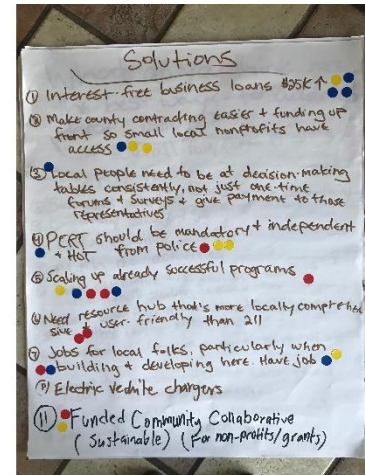 Solutions
① Interest-free business loans $25K↑
② Make county contracting easier + funding up
front so small local nonprofits have
access
③ Local people need to be at decision-making
tables consistently, not just one-time
forums + surveys + give payment to those
representatives
④ PERT should be mandatory + independent
+ HOT from police
⑤ Scaling up already successful programs
⑥ Need resource hub that's more locally comprehen
sive + user-friendly than 211
⑦ Jobs for local folks, particularly when
building + developing here. Have job
Electric vehicle chargers
⑪ Funded Community Collaborative
(Sustainable) (For non-profits/grants)